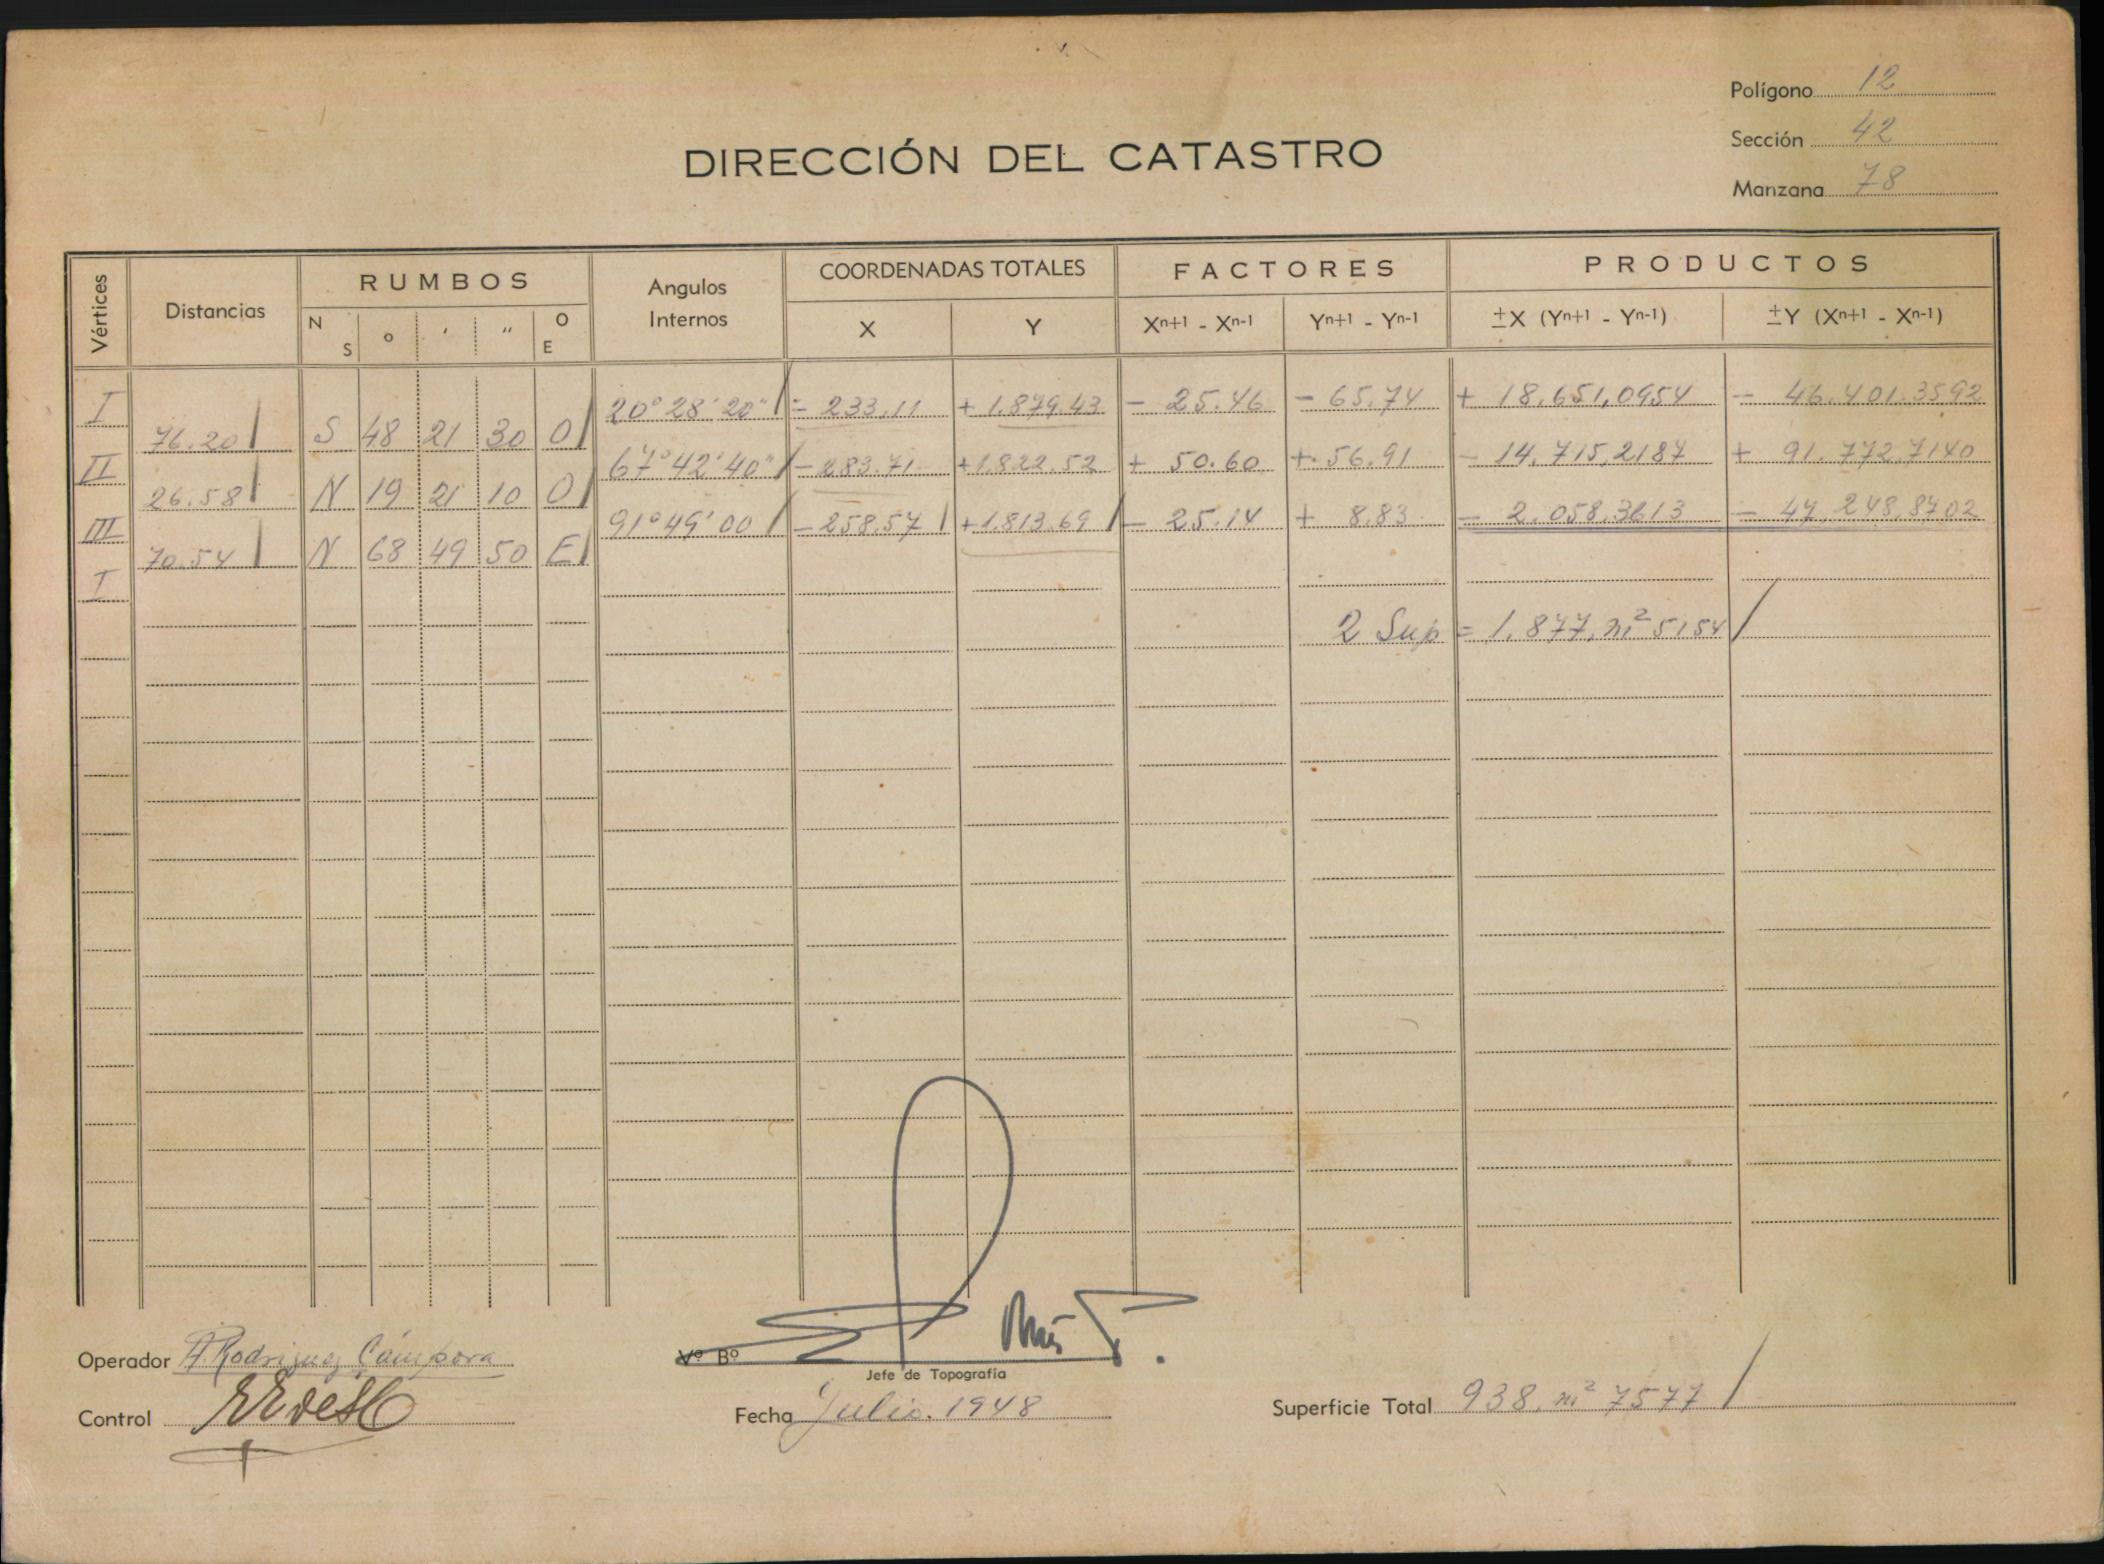 Polígono 12
Sección 42
Manzana 78
DIRECCIÓN DEL CATASTRO
Vértices Distancias RUMBOS Angulos Internos COORDENADAS TOTALES FACTORES PRODUCTOS
N S ° ' " O E X Y Xn+1 - Xn-1 Yn+1 - Yn-1 ±X (Yn+1 - Yn-1) ±Y (Xn+1 - Xn-1)
I 20° 28' 20" - 233.11 + 1.879.43 - 25.46 - 65.74 + 18.651,0954 - 46.401.3592
76.20 S 48 21 30 O
II 67° 42' 40" - 283.71 + 1.822.52 + 50.60 + 56.91 - 14.715,2187 + 91.772,7140
26.58 N 19 21 10 O
III 91° 49' 00 - 258.57 + 1.813.69 - 25.14 + 8.83 - 2.058.3613 - 47.248,8702
70.54 N 68 49 50 E
I
2 Sup = 1.877, m² 5154
Operador Rodriguez Cámpora
Vº Bº
Jefe de Topografía
Control
Fecha Julio. 1948
Superficie Total 938. m² 7577